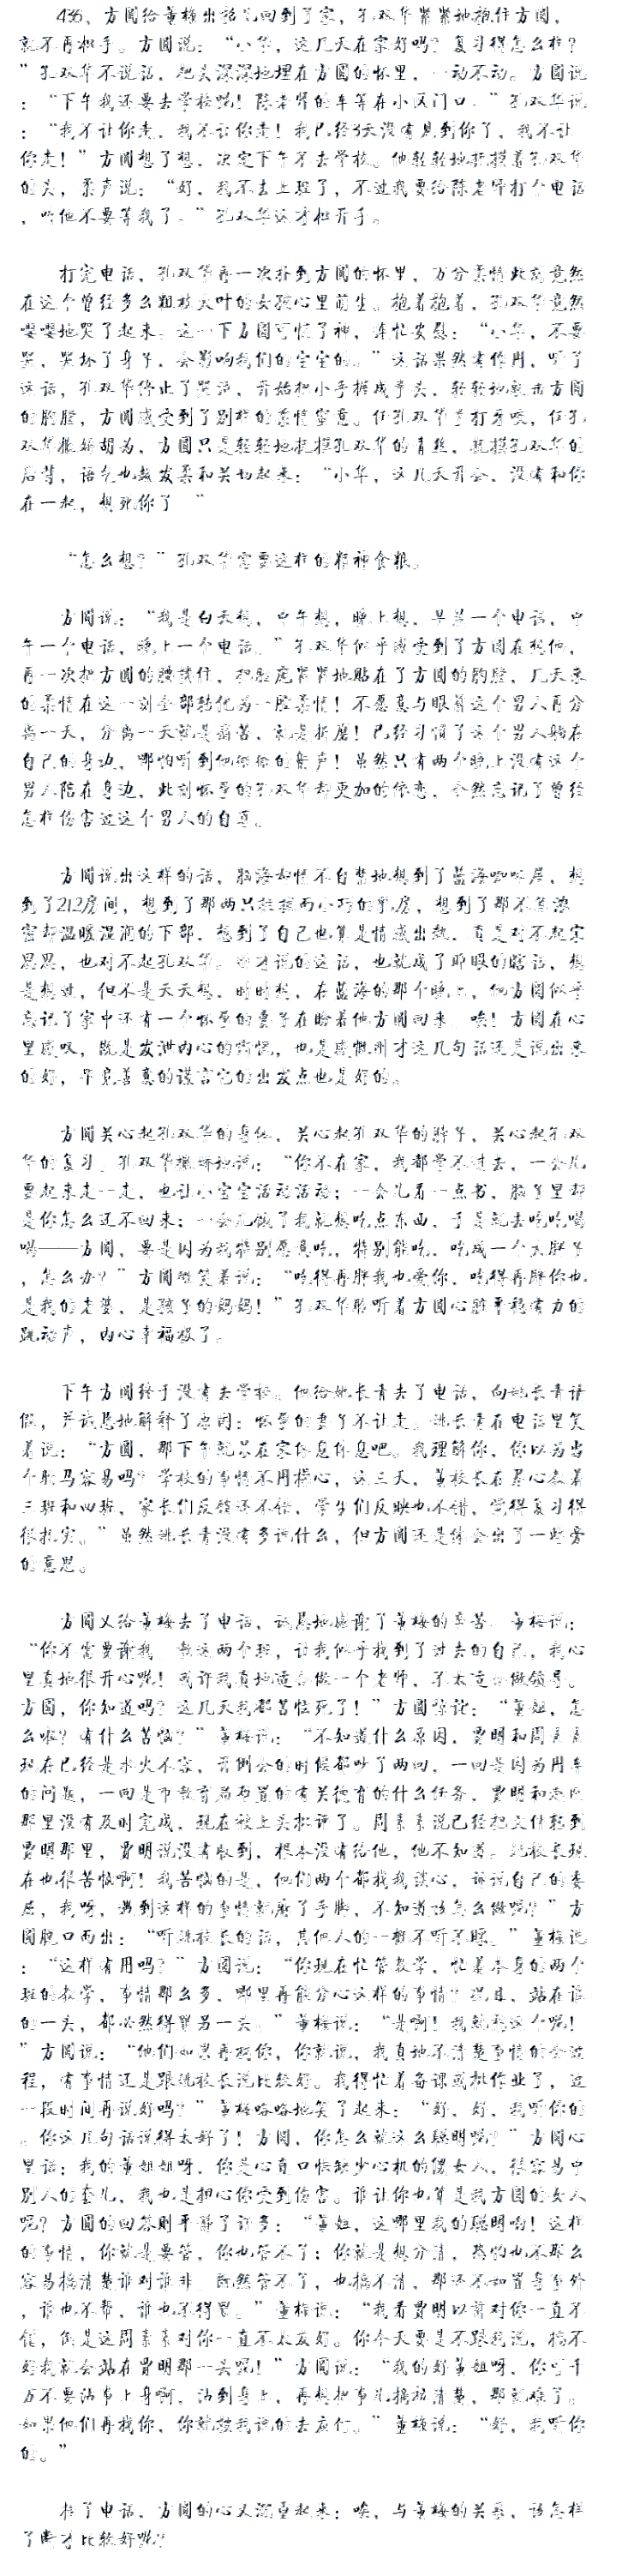 436、方圆给董梅出招完回到了家，孔双华紧紧地抱住方圆，
就不再松手。方圆说：“小华，这几天在家好吗？复习得怎么样？
”孔双华不说话，把头深深地埋在方圆的怀里，一动不动。方圆说
：“下午我还要去学校呢！陈老师的车等在小区门口。”孔双华说
：“我不让你走，我不让你走！我已经3天没有见到你了，我不让
你走！”方圆想了想，决定下午不去学校。他轻轻地抚摸着孔双华
的头，柔声说：“好，我不去上班了，不过我要给陈老师打个电话
，叫他不要等我了。”孔双华这才松开手。
打完电话，孔双华再一次扑到方圆的怀里，万分柔情此刻竟然
在这个曾经多么粗枝大叶的女孩心里萌生。抱着抱着，孔双华竟然
嘤嘤地哭了起来。这一下方圆可慌了神，连忙安慰：“小华，不要
哭，哭坏了身子，会影响我们的宝宝的。”这话果然有作用，听了
这话，孔双华停止了哭泣，开始把小手握成拳头，轻轻地敲击方圆
的胸膛，方圆感受到了别样的柔情蜜意。任孔双华拳打牙咬，任孔
双华撒娇胡为，方圆只是轻轻地抚摸孔双华的青丝，抚摸孔双华的
后背，语气也越发柔和关切起来：“小华，这几天开会，没有和你
在一起，想死你了。”
“怎么想？”孔双华需要这样的精神食粮。
方圆说：“我是白天想，中午想，晚上想，早晨一个电话，中
午一个电话，晚上一个电话。”孔双华似乎感受到了方圆在想他，
再一次把方圆的腰搂住，把脸庞紧紧地贴在了方圆的胸膛，几天来
的柔情在这一刻全部转化为一腔柔情！不愿意与眼前这个男人再分
离一天，分离一天就是痛苦，就是折磨！已经习惯了这个男人躺在
自己的身边，哪怕听到他微微的鼾声！虽然只有两个晚上没有这个
男人陪在身边，此刻怀孕的孔双华却更加的依恋，全然忘记了曾经
怎样伤害过这个男人的自尊。
方圆说出这样的话，脑海却情不自禁地想到了蓝海咖啡屋，想
到了212房间，想到了那两只挺拔而小巧的乳房，想到了那不算浓
密却温暖湿润的下部，想到了自己也算是情感出轨，真是对不起宋
思思，也对不起孔双华。刚才说的这话，也就成了睁眼的瞎话，想
是想过，但不是天天想，时时想，在蓝海的那个晚上，他方圆似乎
忘记了家中还有一个怀孕的妻子在盼着他方圆回来。唉！方圆在心
里感叹，既是发泄内心的郁慌，也是感慨刚才这几句话还是说出来
的好，毕竟善意的谎言它的出发点也是好的。
方圆关心起孔双华的身体，关心起孔双华的脖子，关心起孔双
华的复习。孔双华撒娇地说：“你不在家，我都学不进去，一会儿
要起来走一走，也让小宝宝活动活动；一会儿看一点书，脑子里却
是你怎么还不回来；一会儿饿了我就想吃点东西，于是就去吃吃喝
喝——方圆，要是因为我特别愿意吃，特别能吃，吃成一个大胖子
，怎么办？”方圆微笑着说：“吃得再胖我也爱你，吃得再胖你也
是我的老婆，是孩子的妈妈！”孔双华聆听着方圆心脏平稳有力的
跳动声，内心幸福极了。
下午方圆终于没有去学校。他给姚长青去了电话，向姚长青请
假，并诚恳地解释了原因：怀孕的妻子不让走。姚长青在电话里笑
着说：“方圆，那下午就只在家休息休息吧。我理解你，你以为当
个驸马容易吗？学校的事情不用操心，这三天，董校长在尽心教着
三班和四班，家长们反馈还不错，学生们反映也不错，觉得复习得
很扎实。”虽然姚长青没有多说什么，但方圆还是体会出了一些旁
的意思。
方圆又给董梅去了电话，诚恳地感谢了董梅的辛苦。董梅说：
“你不需要谢我。教这两个班，让我似乎找到了过去的自己，我心
里真地很开心呢！或许我真地适合做一个老师，不太适合做领导。
方圆，你知道吗？这几天我都苦恼死了！”方圆惊讶：“董姐，怎
么啦？有什么苦恼？”董梅说：“不知道什么原因，贾明和周素素
现在已经是水火不容，开例会的时候都吵了两回，一回是因为用车
的问题，一回是市教育局布置的有关德育的什么任务，贾明和志民
那里没有及时完成，现在被上头批评了。周素素说已经把文件转到
贾明那里，贾明说没有收到，根本没有给他，他不知道。姚校长现
在也很苦恼啊！我苦恼的是，他们两个都找我谈心，诉说自己的委
屈，我呀，遇到这样的事情就麻了手脚，不知道该怎么做呢？”方
圆脱口而出：“听姚校长的话，其他人的一概不听不睬。”董梅说
：“这样有用吗？”方圆说：“你现在忙管教学，忙着本身的两个
班的教学，事情那么多，哪里再能分心这样的事情？况且，站在谁
的一头，都必然得罪另一头。”董梅说：“是啊！我就愁这个呢！
”方圆说：“他们如果再找你，你就说，我真地不清楚事情的全过
程，有事情还是跟姚校长说比较好。我得忙着备课或批作业了，过
一段时间再说好吗？”董梅咯咯地笑了起来：“好，好，我听你的
。你这几句话说得太好了！方圆，你怎么就这么聪明呢？”方圆心
里话：我的董姐姐呀，你是心直口快缺少心机的傻女人，很容易中
别人的套儿，我也是担心你受到伤害。谁让你也算是我方圆的女人
呢？方圆的回答则平静了许多：“董姐，这哪里我的聪明啊！这样
的事情，你就是要管，你也管不了；你就是想分清，恐怕也不那么
容易搞清楚谁对谁非。既然管不了，也搞不清，那还不如置身事外
，谁也不帮，谁也不得罪。”董梅说：“我看贾明以前对你一直不
错，倒是这周素素对你一直不太友好。你今天要是不跟我说，搞不
好我就会站在贾明那一头呢！”方圆说：“我的好董姐呀，你可千
万不要沾事上身啊，沾到身上，再想把事儿搞搞清楚，那就难了。
如果他们再找你，你就按我说的去应付。”董梅说：“好，我听你
的。”
挂了电话，方圆的心又沉重起来：唉，与董梅的关系，该怎样
了断才比较好呢？